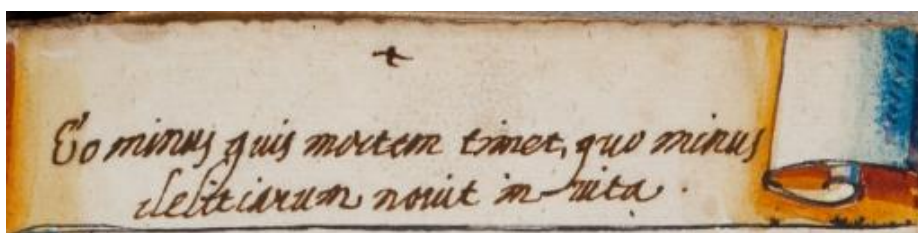 +
Eo minus quis mortem timet, quo minus
delitiarum nouit in uita.